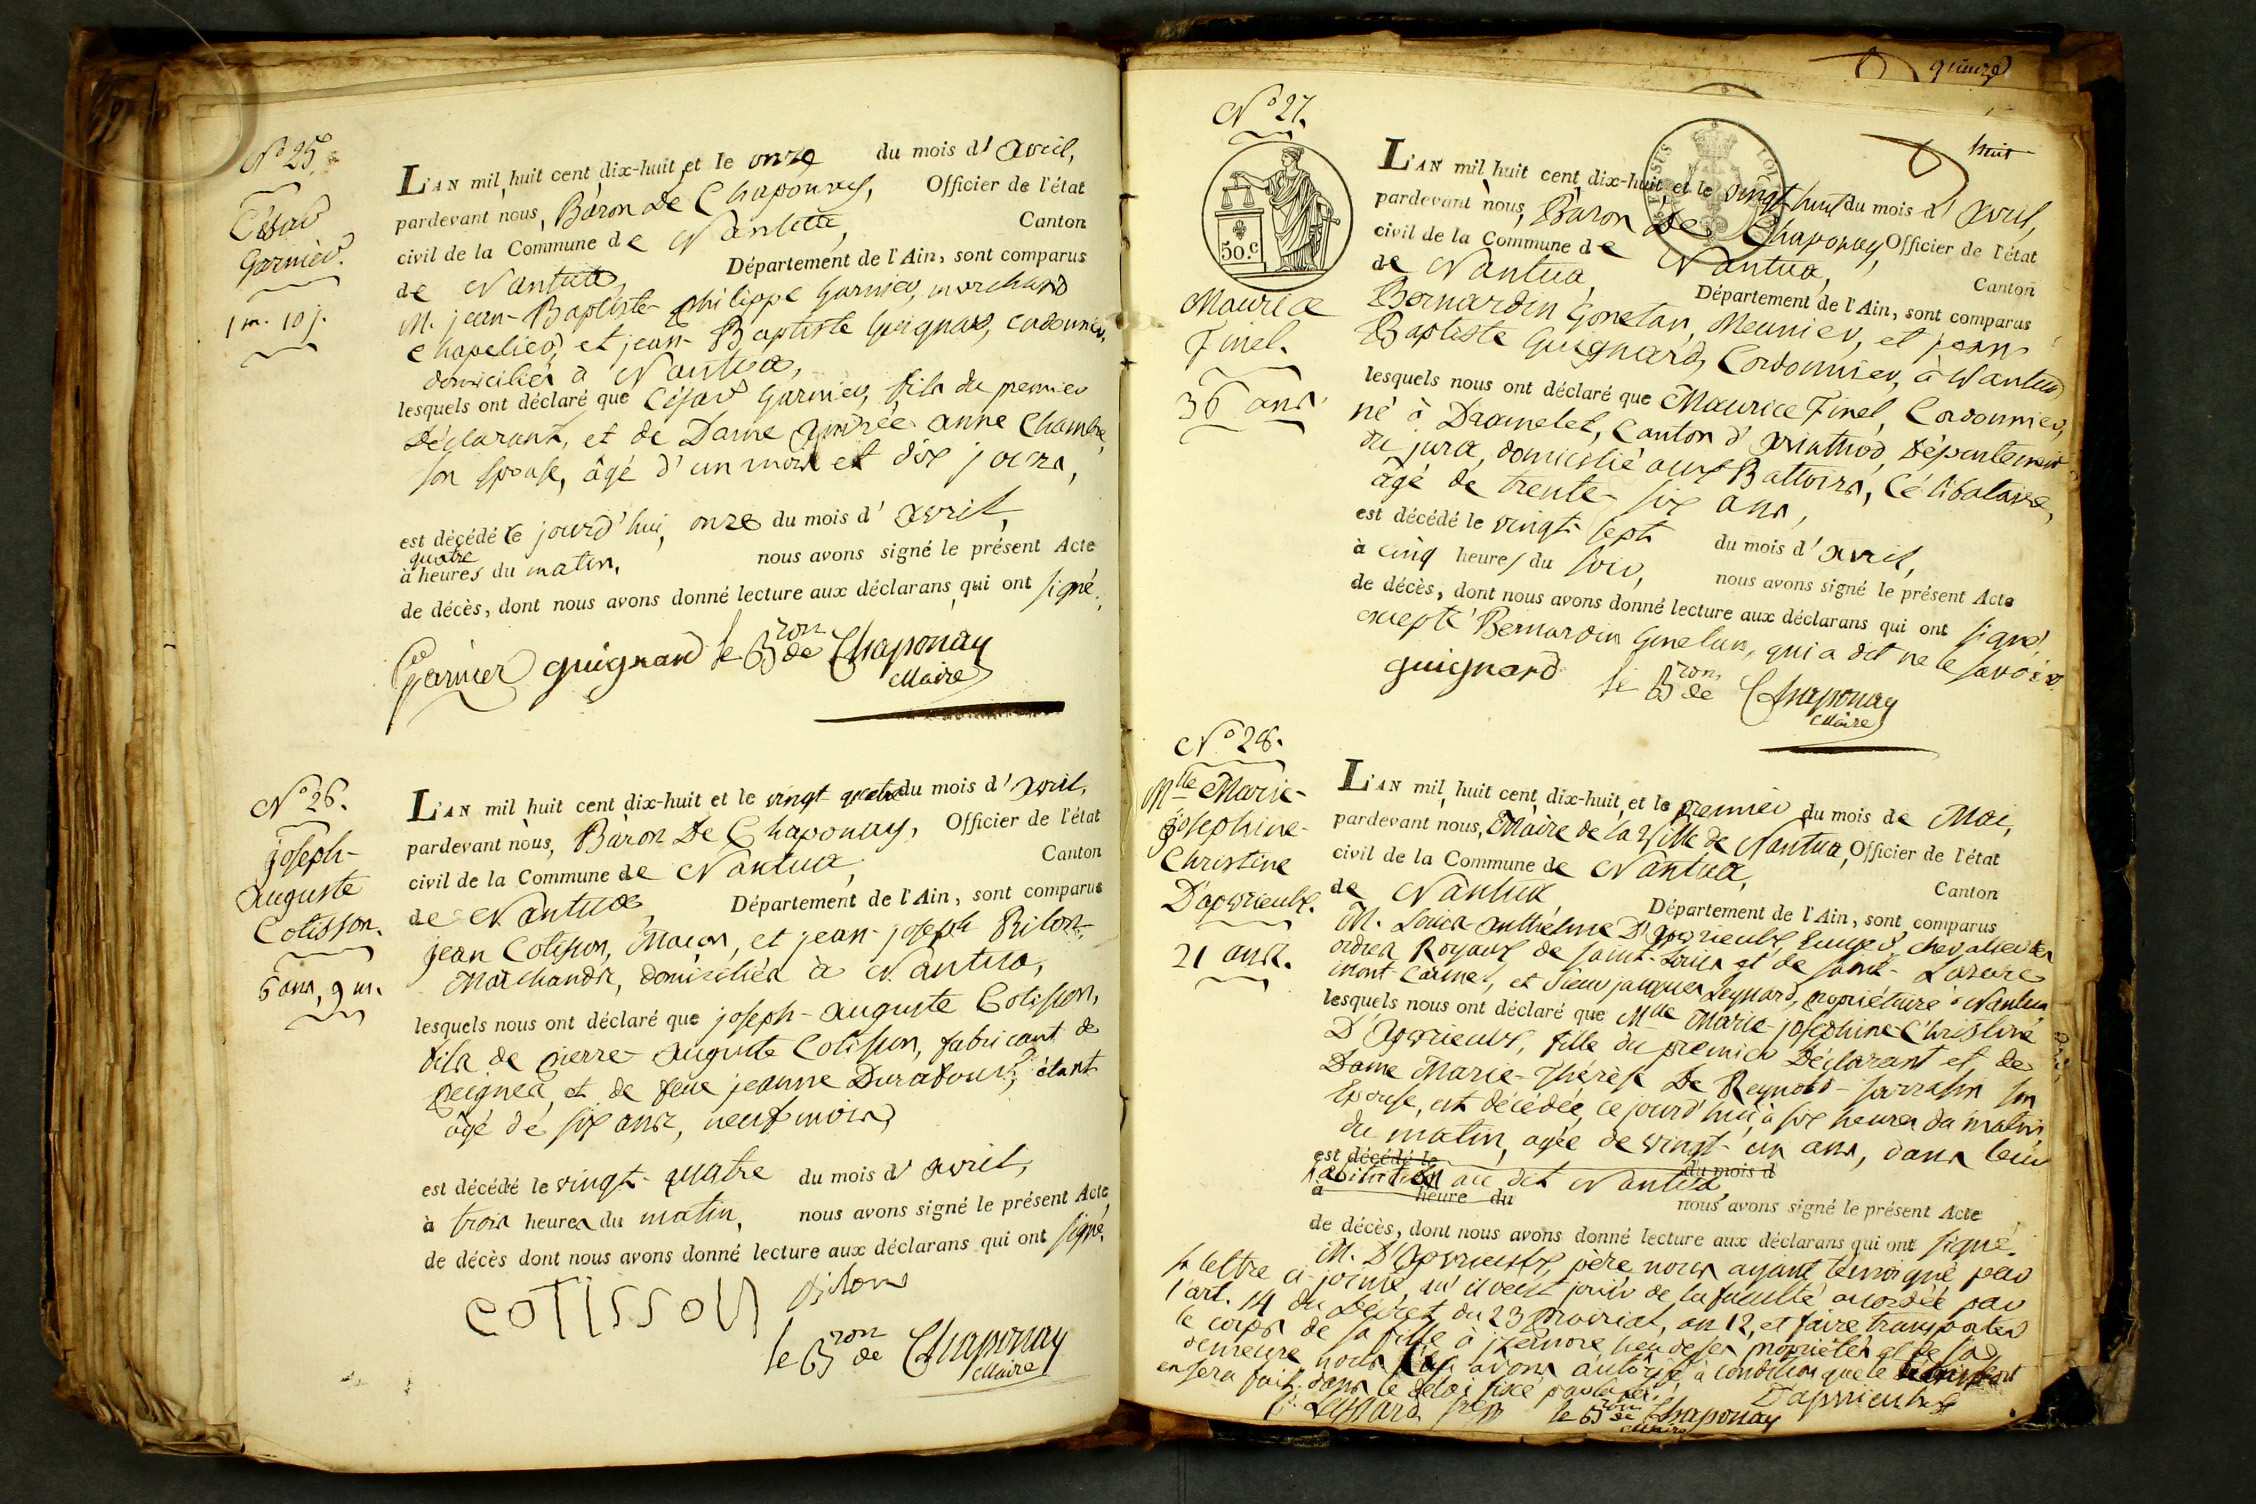 N.º 25.
César
Garnier.
1 m. 10 j.
L'AN mil huit cent dix-huit et le onze du mois d'avril,
pardevant nous, Baron De Chaponay, Officier de l'état
civil de la Commune de Nantua, Canton
de Nantua, Département de l'Ain, sont comparus
M. jean-Baptiste-philippe Garnier, marchand
chapelier, et jean-Baptiste Guignard, cordonnier,
domiciliés à Nantua,
lesquels ont déclaré que César Garnier, fils du premier
Déclarant, et de Dame Andrée anne Chambre,
son Epouse, âgé d'un mois et dix jours,
est décédé ce jourd'hui, onze du mois d'avril,
quatre
à heures du matin, nous avons signé le présent Acte
de décès, dont nous avons donné lecture aux déclarans qui ont signé.
Garnier guignard le Bron de Chaponay
Maire
N.º 26.
joseph-
auguste
Cotisson.
6 ans, 9 m.
L'AN mil huit cent dix-huit et le vingt quatre du mois d'avril,
pardevant nous, Baron De Chaponay, Officier de l'état
civil de la Commune de Nantua, Canton
de Nantua, Département de l'Ain, sont comparus
jean Cotisson, Maçon, et jean-joseph Pilon,
Marchands, domiciliés à Nantua,
lesquels nous ont déclaré que joseph-auguste Cotisson,
fils de pierre-auguste Cotisson, fabricant de
peignes, et de feue jeanne Durafour, étant
âgé de six ans, neuf mois,
est décédé le vingt-quatre du mois d'avril,
à trois heures du matin, nous avons signé le présent Acte
de décès dont nous avons donné lecture aux déclarans qui ont signé.
COTISSON
le Bron de Chaponay
Maire
quinze
huit
N.º 27.
50.c
Maurice
Finel.
36 ans.
L'AN mil huit cent dix-huit et le vingt-huit du mois d'avril,
pardevant nous, Baron de Chaponay, Officier de l'état
civil de la Commune de Nantua, Canton
de Nantua, Département de l'Ain, sont comparus
Bernardin Gonelan, Meunier, et jean-
Baptiste Guignard, Cordonnier, à Nantua
lesquels nous ont déclaré que Maurice Finel, Cordonnier,
né à Dramelet, Canton d'arinthod, Département
du jura, domicilié aux Battoirs, Célibataire,
âgé de trente-six ans,
est décédé le vingt-sept du mois d'avril,
à cinq heures du soir, nous avons signé le présent Acte
de décès, dont nous avons donné lecture aux déclarans qui ont signé,
excepté Bernardin Gonelan, qui a dit ne le savoir.
guignard le Bron de Chaponay
Maire
N.º 28.
Mlle Marie-
josephine-
Christine
D'apvrieulx.
21 ans.
L'AN mil huit cent dix-huit et le premier du mois de Mai,
pardevant nous, Maire de la Ville de Nantua, Officier de l'état
civil de la Commune de Nantua, Canton
de Nantua, Département de l'Ain, sont comparus
M. Louis anthelme D'apvrieulx, Ecuyer, chevalier des
ordres Royaux de saint-Louis et de saint-Lazare
mont Carmel, et sieur jacques Leyssard, propriétaire à Nantua
lesquels nous ont déclaré que Mlle Marie-josephine-Christine
D'apvrieulx, fille du premier Déclarant et de
Dame Marie-Thérèse De Reynold-sarrasin son
Epouse, est décédée, ce jourd'hui, à six heures du matin
du matin, agée de vingt-un ans, dans leur
est décédé le du mois d
habitation au dit Nantua,
à heure du nous avons signé le présent Acte
de décès, dont nous avons donné lecture aux déclarans qui ont signé.
M. D'apvrieulx, père nous ayant témoigné par
sa lettre ci-jointe, qu'il veut jouir de la faculté accordée par
l'art. 14 du Décret du 23 prairial, an 12, et faire transporter
le corps de sa fille à jzernore, lieu de ses propriétés et de sa
demeure, nous l'y avons autorisé, à condition que le transport
en sera fait dans le délai fixé par la loi.
D'apvrieulx
Leyssard le Bron de Chaponay
Maire